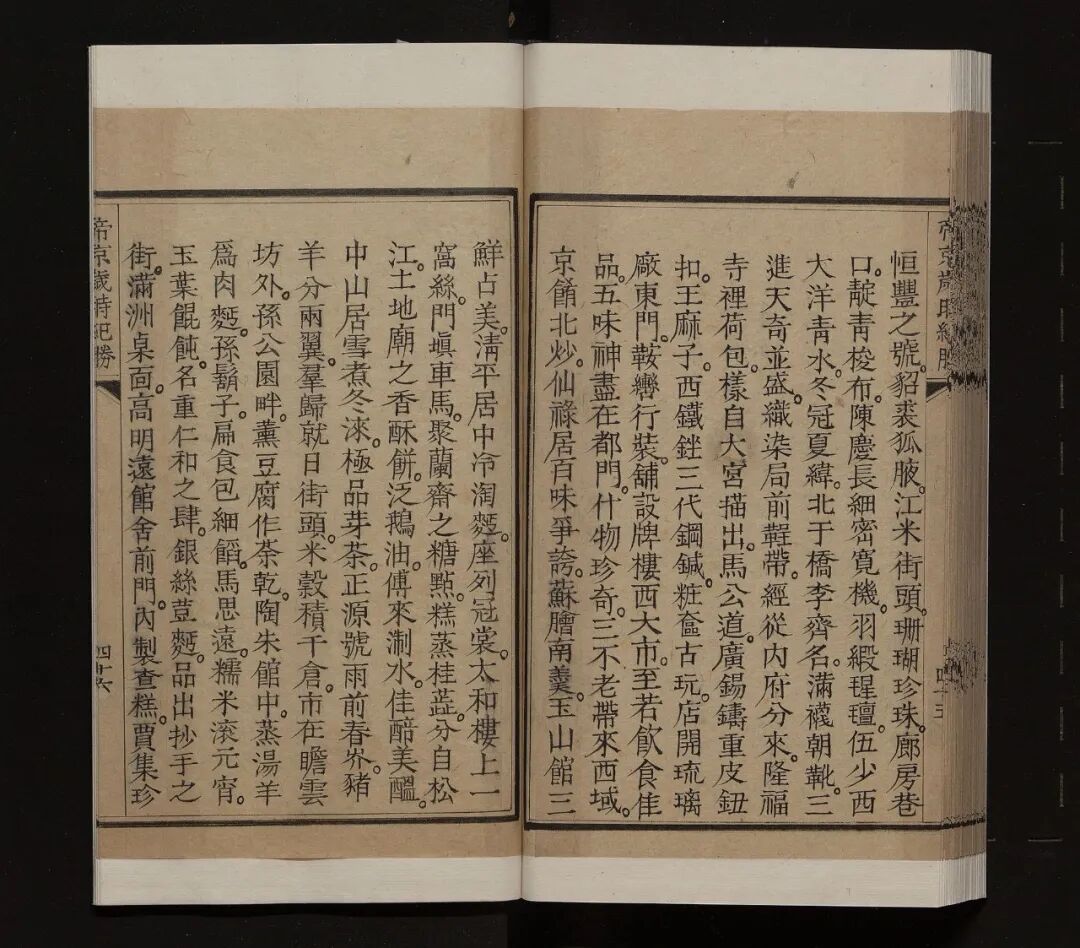 恒豐之號。貂裘狐腋。江米街頭。珊瑚珍珠。廊房巷
口。靛青梭布。陳慶長細密寬機。羽緞瑆璮。伍少西
大洋青水。冬冠夏緯。北于橋李齊名。滿襪朝靴。三
進天奇並盛。織染局前鞓帶。經從內府分來。隆福
寺裡荷包。樣自大宮描出。馬公道。廣錫鑄重皮鈕
扣。王麻子。西鐵銼三代鋼鍼。粧奩古玩。店開琉璃
廠東門。鞍轡行裝。舖設牌樓西大市。至若飲食佳
品。五味神盡在都門。什物珍奇。三不老帶來西域。
京餚北炒。仙祿居百味爭誇。蘇膾南羹。玉山館三
鮮占美。淸平居中冷淘麵。座列冠裳。太和樓上一
窩絲。門塡車馬。聚蘭齋之糖點。糕蒸桂蕋。分自松
江。土地廟之香酥餅。泛鵝油。傅來浙水。佳醅美醞。
中山居雪煮冬淶。極品芽茶。正源號雨前春岕。豬
羊分兩翼。羣歸就日街頭。米穀積千倉。市在瞻雲
坊外。孫公園畔。薰豆腐作茶乾。陶朱館中。蒸湯羊
爲肉麵。孫鬍子。扁食包細餡。馬思遠。糯米滾元宵。
玉葉餛飩。名重仁和之肆。銀絲荳麵。品出抄手之
街。滿洲桌面。高明遠館舍前門。內製查糕。賈集珍
帝京歲時紀勝
四十六